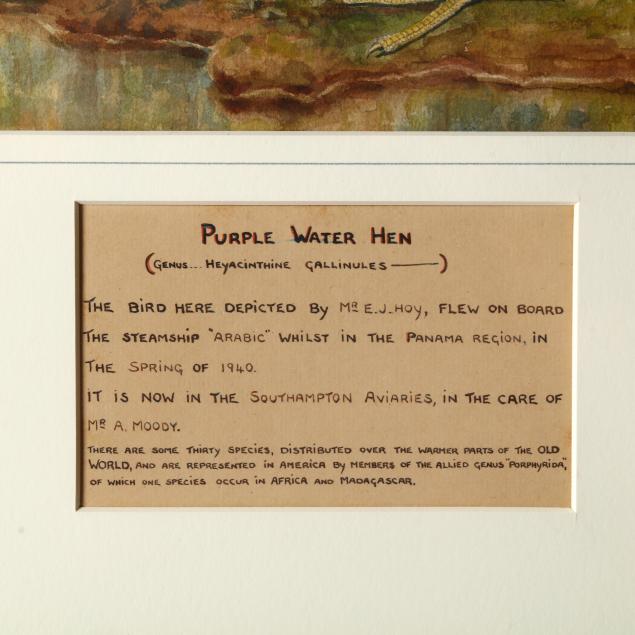 Purple Water Hen
(Genus... Heyacinthine Gallinules ——)
The bird here depicted by Mr E.J. Hoy, flew on board
the steamship "Arabic" whilst in the Panama region, in
the Spring of 1940.
It is now in the Southampton Aviaries, in the care of
Mr A. Moody.
There are some thirty species, distributed over the warmer parts of the Old
World, and are represented in America by members of the allied genus "Porphyrida",
of which one species occur in Africa and Madagascar.